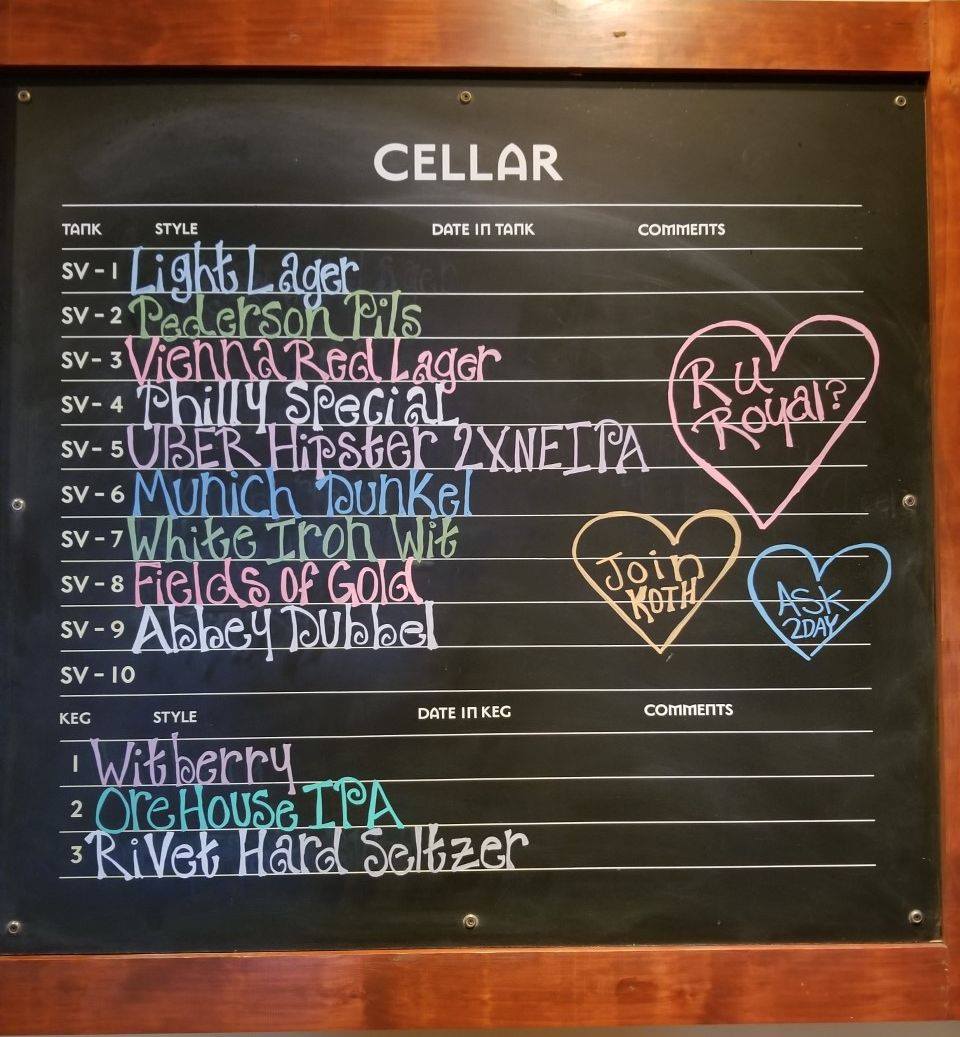 CELLAR
TANK STYLE DATE IN TANK COMMENTS
SV-1 Light Lager
SV-2 Pederson Pils
SV-3 Vienna Red Lager
SV-4 Philly Special
SV-5 UBER Hipster 2XNEIPA
SV-6 Munich Dunkel
SV-7 White Iron Wit
SV-8 Fields of Gold
SV-9 Abbey Dubbel
SV-10
R U
Royal?
Join
KOTH
ASK
2DAY
KEG STYLE DATE IN KEG COMMENTS
1 Witberry
2 OreHouse IPA
3 Rivet Hard Seltzer